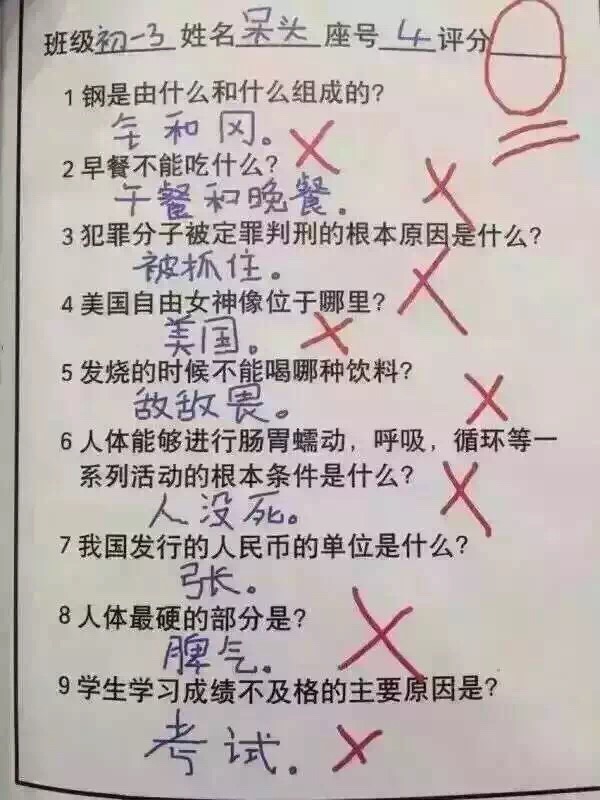 班级初一3 姓名呆头 座号 4 评分0
1 钢是由什么和什么组成的?
钅和冈。
2 早餐不能吃什么?
午餐和晚餐.
3 犯罪分子被定罪判刑的根本原因是什么?
被抓住。
4 美国自由女神像位于哪里?
美国。
5 发烧的时候不能喝哪种饮料?
敌敌畏。
6 人体能够进行肠胃蠕动，呼吸，循环等一
系列活动的根本条件是什么?
人没死。
7 我国发行的人民币的单位是什么?
张。
8 人体最硬的部分是?
脾气.
9 学生学习成绩不及格的主要原因是?
考试.